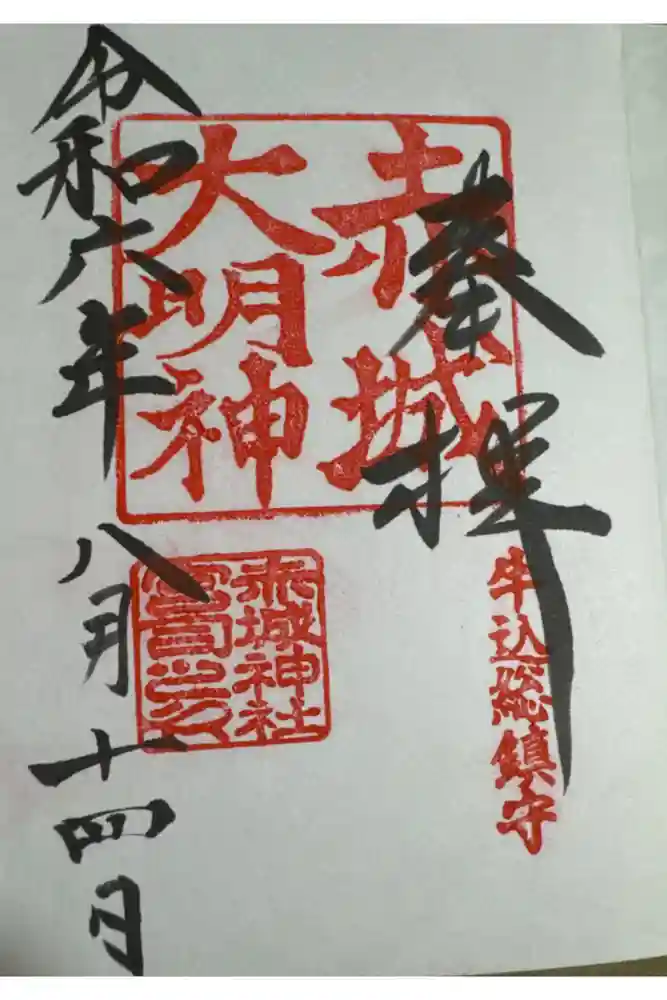 奉拝
牛込総鎮守
赤城
大明神
赤城神社
宮司之印
令和六年八月十四日